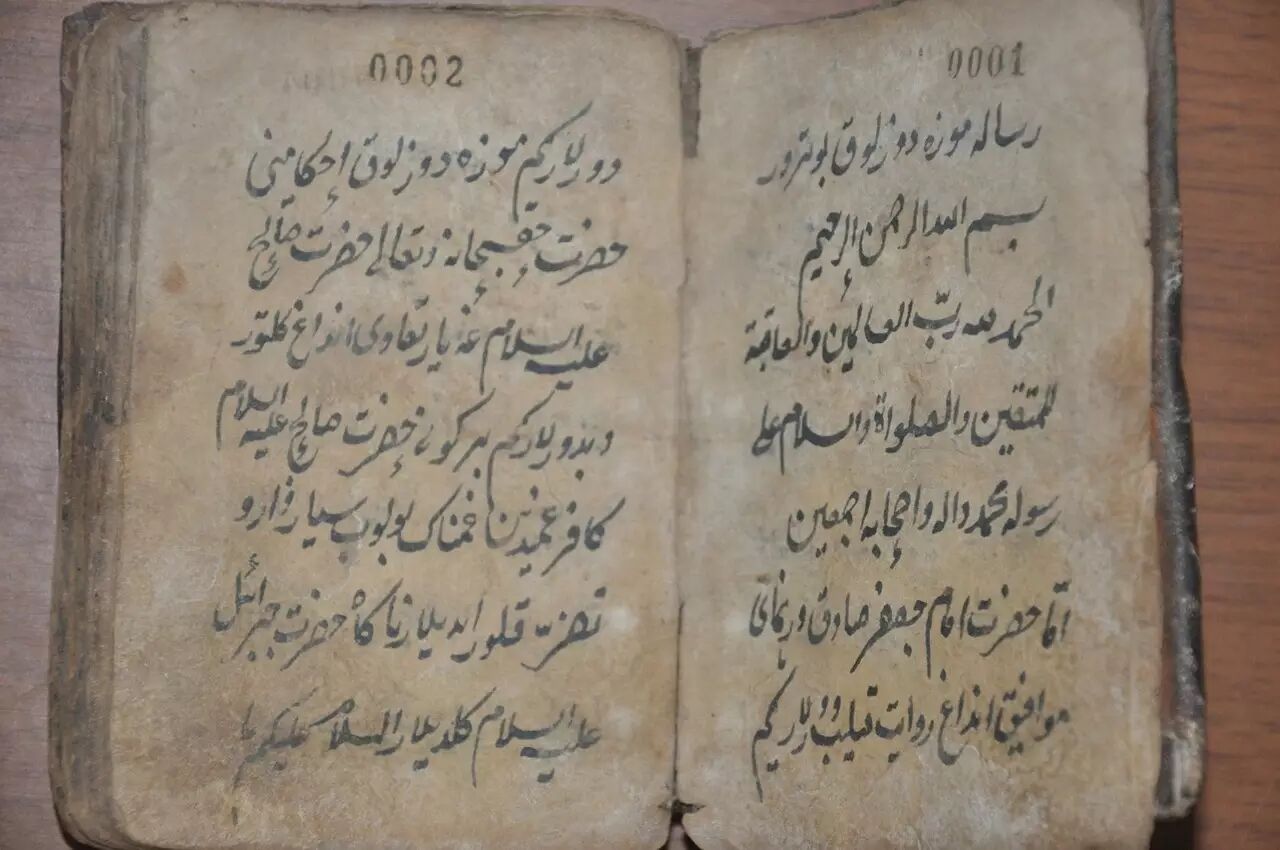 0001
رساله موزه دوزلوق بوتورور
بسم الله الرحمن الرحيم
الحمد لله ربّ العالمين والعاقبة
للمتقين والصلواة والسلام على
رسوله محمد واله واصحابه اجمعين
امّا حضرت امام جعفر صادق
موافق انداغ روايت قيليب دورلاركيم
0002
دورلاركيم موزه دوزلوق احكاميني
حضرت حق سبحانه وتعالى حضرت صالح
عليه السلام غه يارتقاوى انداغ كلتور
دورلاركيم بركون حضرت صالح عليه السلام
كافر غميدين غمناك بولوب
تضرّع قلور ايديلار ناكاه حضرت جبرائل
عليه السلام كلديلار السلام عليكم يا